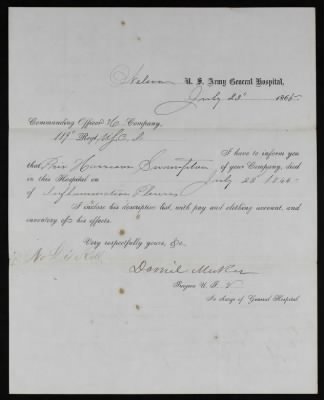 Nelson U. S. Army General Hospital,
July 23 1865
Commanding Officer Company,
119 Regt. U.S.C.I.
I have to inform you
that Priv of your Company, died
in this Hospital on July 23 1865
of Inflammation Pleura
I enclose his descriptive list, with pay and clothing account, and
inventory of his effects.
Very respectfully yours, &c.
Daniel Meeker
Surgeon U. S. V.
In charge of General Hospital